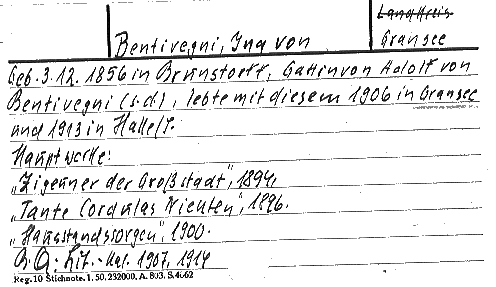 Landkreis
Bentivegni, Ina von Gransee
Geb. 3.12.1856 in Brunstorff, Gattin von Adolf von
Bentivegni (s.d.), lebte mit diesem 1906 in Gransee
und 1913 in Halle/S.
Hauptwerke:
„Zigeuner der Großstadt", 1894,
„Tante Cordulas Nichten", 1896.
„Hausstandssorgen", 1900.
B. Q.: Lit.-Kal. 1907, 1914
Reg. 10 Stichnote. 1. 50. 232000. A. 803. S. 4662